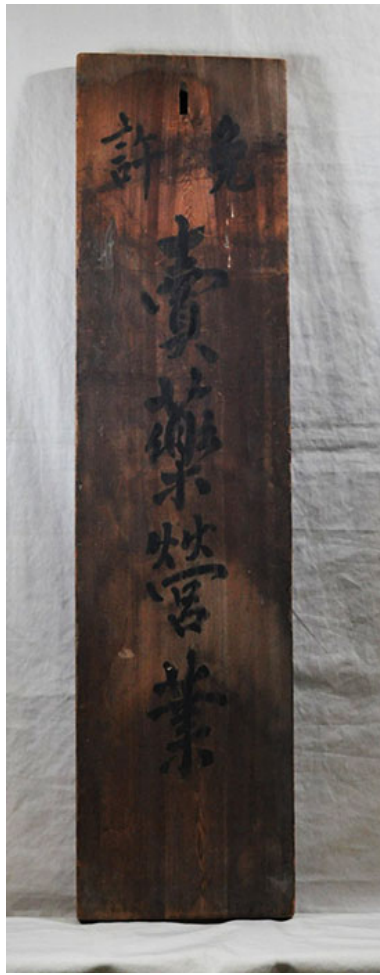 免許
賣藥營業